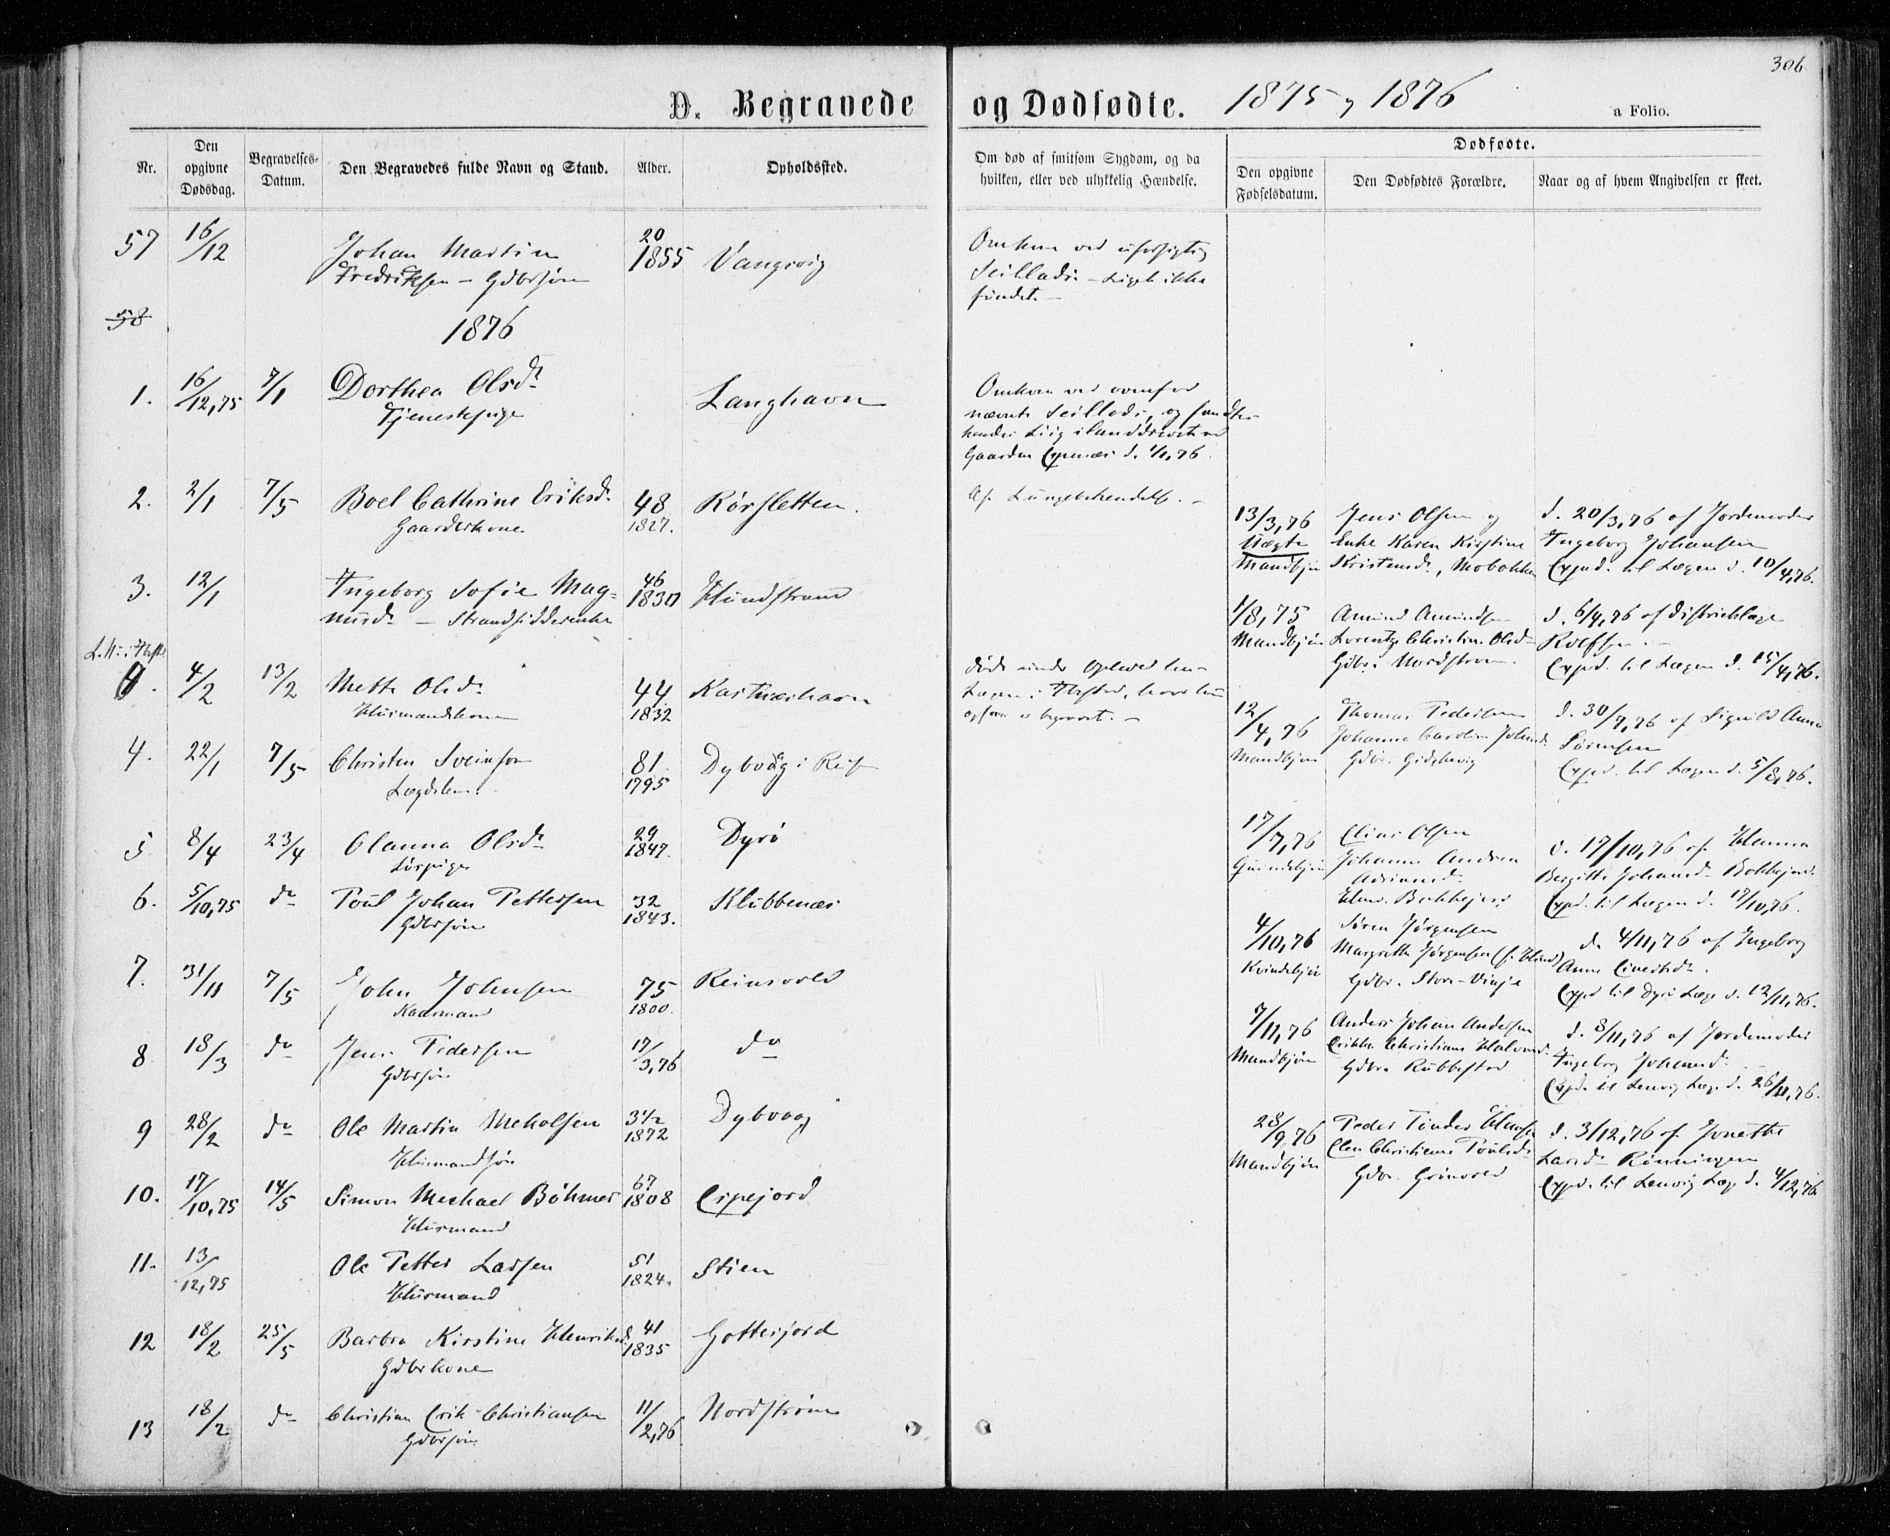 306
D. Begravede og Dødfødte. 1875 og 1876
a Folio.
Nr.
Den opgivne Dødsdag.
Begravelses-Datum.
Den Begravedes fulde Navn og Stand.
Alder.
Opholdssted.
Om død af smitsom Sygdom, og da
hvilken, eller ved ulykkelig Hændelse.
Dødfødte.
Den opgivne Fødselsdatum.
Den Dødfødtes Forældre.
Naar og af hvem Angivelsen er skeet.
57 16/12 Johan Martin 20 1855 Vangsvig
Fredriksen - Gdbrsøn
Omkom ved uforsigtig
Seillads - Liget ikke
fundet. -
58
1876
1. 16/12,75 7/1 Dorthea Olsdt Langhavn
Tjenestepige
Omkom ved ovenfor
nævnte Seillads, og fandtes
hendes Liig ilanddrevet ved
Gaarden d. 1/1,76.
2. 2/1 7/5 Boel Cathrine Eriksd. 48 1827. Rørsletten.
Gaardkone
Af
3. 12/1 Ingeborg Sofie Mag- 46 1830 Hundstrand
nusd. - Strandsidderenke
4. 4/2 13/2 Mette Olsd. 44 1832 Kastnæshavn
Husmandskone
døde under Ophold hos
Lægen i
4. 22/1 7/5 Christen Sveinsen 81. 1795 Dybvaag i
Lægdslem.
5 8/4 23/4 Olanna Olsdt 29 1847. Dyrø
6. 5/10,75 do Poul Johan Pettersen 32 1843. Klubbenæs
Gdbrsøn
7. 31/11 7/5 John Johnsen 75 1800. Reinsvold
Kaarmand
8 18/3 do Jens Pedersen 17/3,76 do
Gdbrsøn
9 28/2 do Ole Martin 3 1/2 1872 Dybvaag
Husmandsøn
10. 17/10,75 14/5 Simon Michael Böhmer 67 1808 Espejord
Husmand
11. 13/12,75 Ole Petter Larsen 51 1824. Stien
Husmand
12 18/2 25/5 Barbra Kirstine Henriksd 41 1835 Gottesjord
Gdbrkone
13 18/2 do Christian Erik Christiansen 11/2,76 Nordstrøm
Gdbrsøn
13/3,76 Jens Olsen og d. 20/3,76 af Jordemoder
Uægte Enke Karen Kirstine Ingeborg Johansen
Mandkjøn Kristensd., Mobakken Expd. til Lægen d. 10/4,76.
1/8,75 Amund Amundsen d. 6/4,76 af Distriktslæge
Mandkjøn Lorentze Christine Olsd.
Gdbr. Nordstrøm. Expd. til Lægen d. 15/4,76.
12/4,76 Thomas Pedersen d. 30/7,76 af Sigrild Anna
Johanna Caroline Johnsd. Sørensen
Mandkjøn Gdbr. Expd. til Lægen d. 5/8,76.
17/7,76 Elias Olsen d. 17/10,76 af Hanna
Johanna Andrea Bergitte Johansd.
Expd. til Lægen d. 17/10,76.
4/10,76 Søren Jørgensen d. 4/11,76 af Ingeborg
Margrethe Jørgensen Anne
Kvindekjøn Gdbr. Store-Vinje
Expd til Dyrø Læge d. 12/11,76.
7/11,76 Anders Johan Andersen d. 8/11,76 af Jordemoder
Erikka Christiane Halvorsd. Ingeborg Johansd.
Mandkjøn Gdbr. Rubbestad
Expd. til Lenvig Læge d. 26/11,76.
28/9,76 Peder Tønder Hansen d. 3/12,76 af Jonette
Elen Christiane Poulsd. Larsd. Rønningen
Mandkjøn Gdbr. Grinvold
Expd. til Lenvig Læge d. 4/12,76.